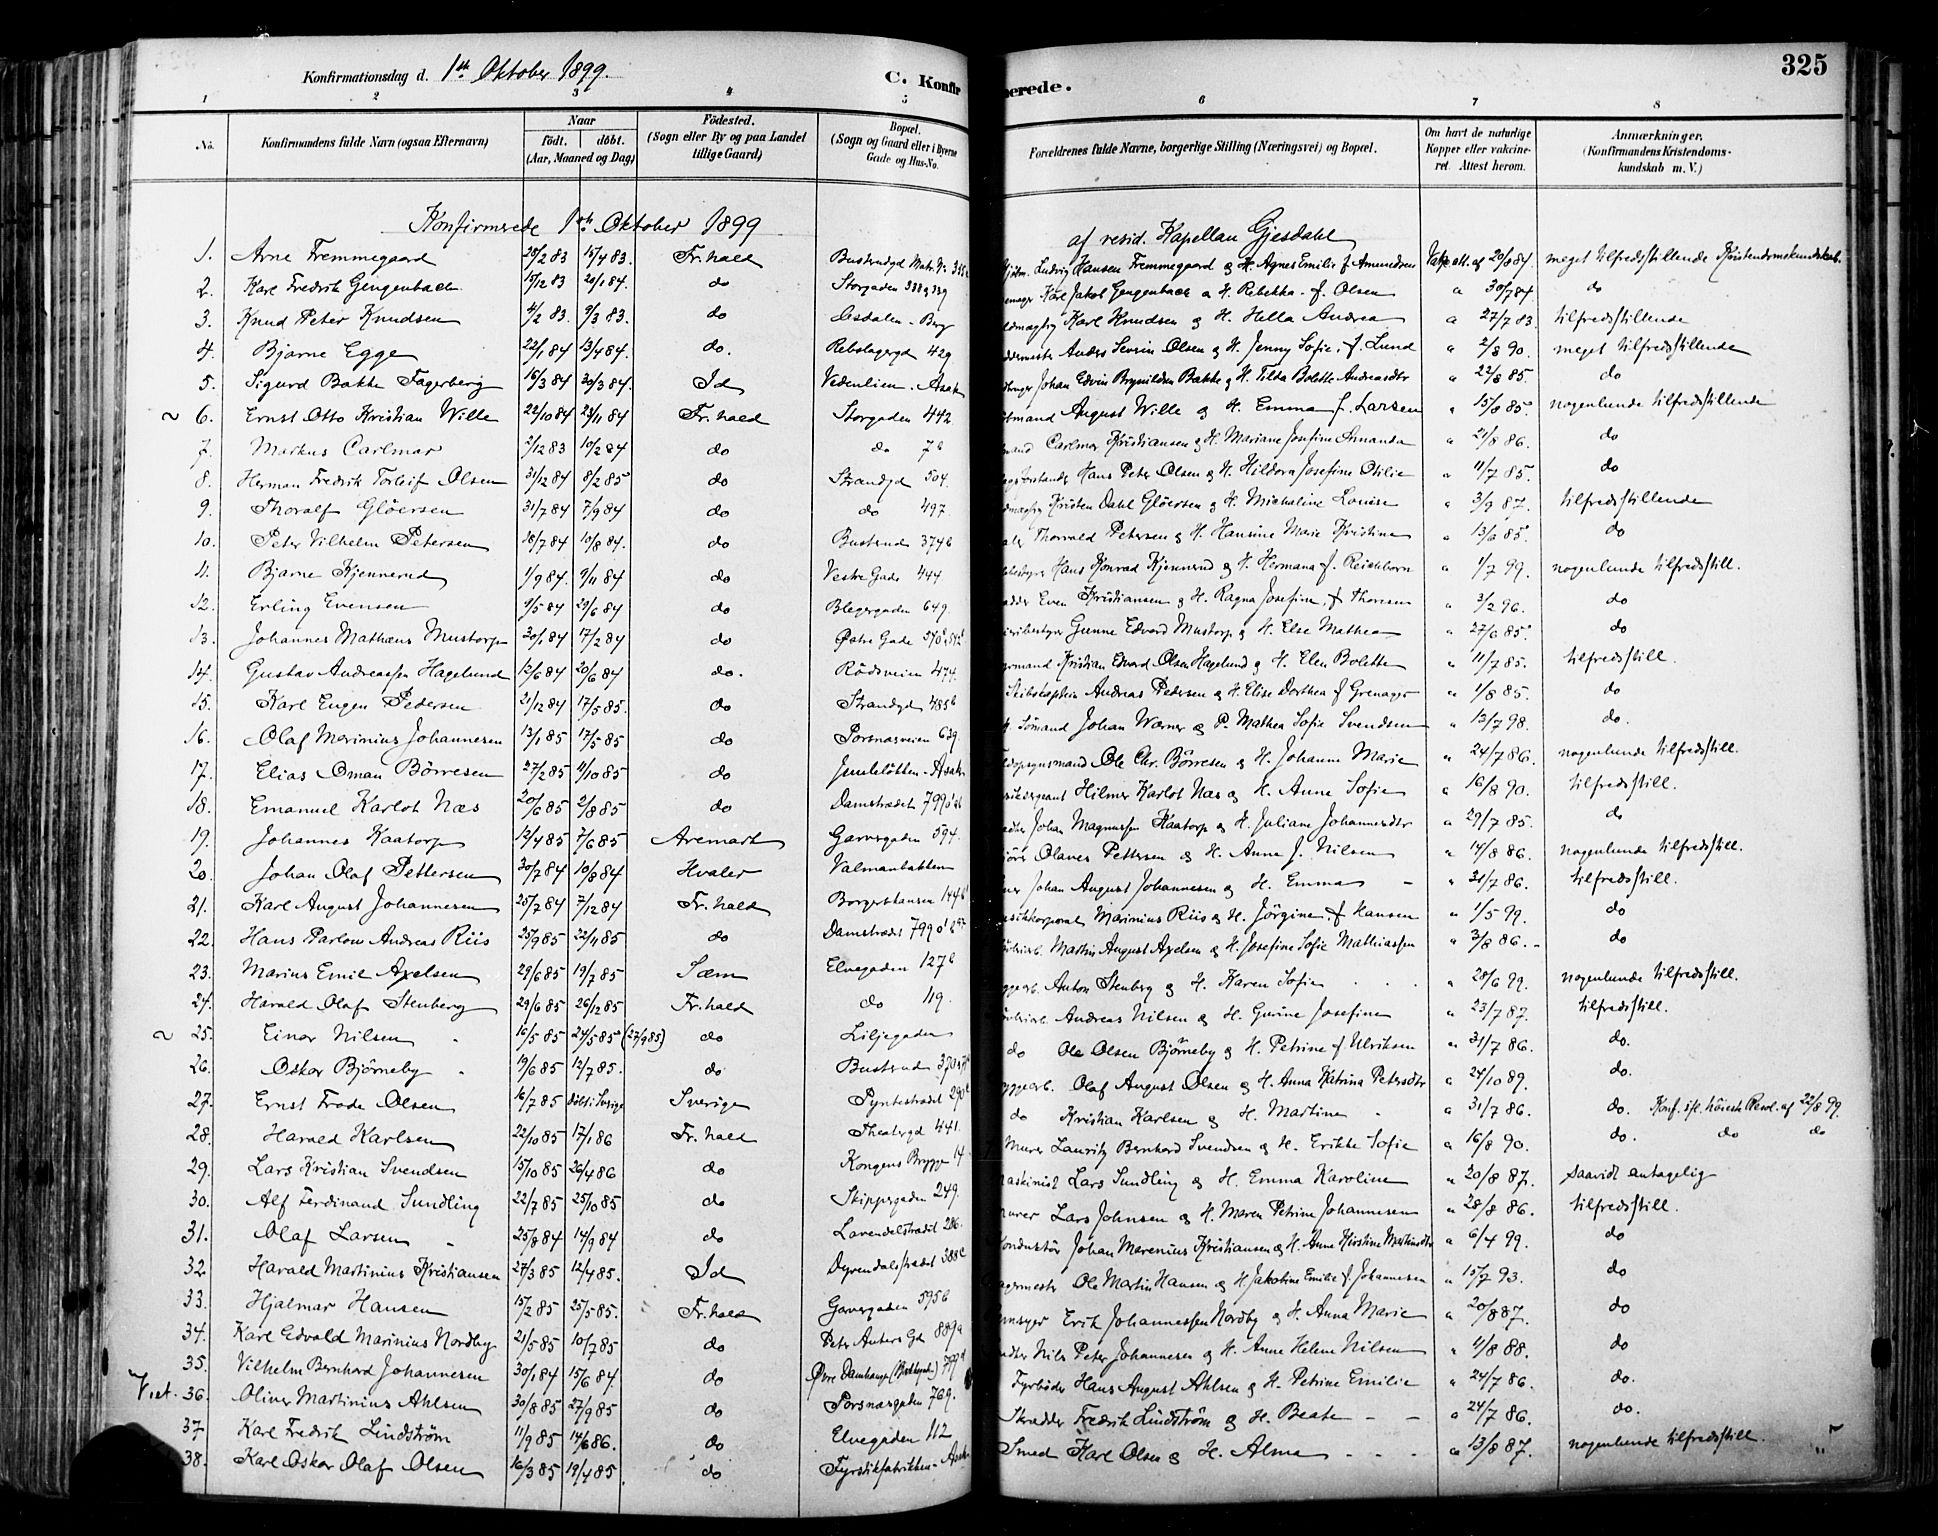 325
Konfirmationsdag d. 1ste Oktober 1899.
C. Konfir merede.
1 2 3 4 5 6 7 8
No. Konfirmandens fulde Navn (ogsaa Efternavn) Naar født. døbt. (Aar, Maaned og Dag) Fødested. (Sogn eller By og paa Landet tillige Gaard) Bopæl. (Sogn og Gaard eller i Byerne Gade og Hus-No. Forældrenes fulde Navne, borgerlige Stilling (Næringsvei) og Bopæl. Om havt de naturlige Kopper eller vakcineret. Attest herom. Anmærkninger. (Konfirmandens Kristendomskundskab m. V.)
Konfirmerede 1ste Oktober 1899 af resid. Kapellan Gjesdahl
1. Arne Fremmegaard 20/2 83 15/4 83. Fr.hald Ludvig Hansen Fremmegaard & H. Agnes Emilie f. Amundsen Vakc. att. af 20/8 84. meget tilfredsstillende Kristendomskundskab.
2. Karl Fredrik Gengenbach 15/12 83 20/1 84. do Storgaden 338 & 339 Karl Jakob Gengenbach & H. Rebekka f. Olsen " 30/7 84 do
3. Knud Peter Knudsen 4/2 83. 9/3 83. do Berg Karl Knudsen & H. Hella Andrea " 27/7 83. tilfredsstillende
4. Bjarne Egge 22/1 84 13/4 84. do. Rebslagergd 429 Anders Severin Olsen & H. Jenny Sofie, f. Lund " 2/8 90. meget tilfredsstillende
5. Sigurd Bakke Fagerberg 16/3 84 30/3 84. Id Vedenlien. Asak Johan Edvin Brynildsen Bakke & H. Tilda Bolette Andreasdtr " 22/8 85. do
~ 6. Ernst Otto Kristian Wille 22/10 84 23/11 84 Fr.hald Storgaden 442 August Wille & H. Emma f. Larsen " 15/8 85. nogenlunde tilfredsstillende
7. Markus Carlmar 2/12 83 10/2 84 do do 7b Carlmar Kristiansen & H. Mariane Josefine Amanda " 21/8 86. do
8. Herman Fredrik Torleif Olsen 31/12 84 8/2 85 do Strandgd 504. Hans Peter Olsen & H. Hildora Josefine Otilie " 11/7 85. do
9. Thoralf Gløersen 31/7 84 7/9 84 do do 497. Kristen Dahl Gløersen & H. Michaline Louise " 3/9 87. tilfredsstillende
10. Peter Vilhelm Petersen 18/7 84 10/8 84. do Busterud 374b Thorvald Petersen & H. Hansine Marie Kristine " 13/6 85. do
11. Bjarne Kjennerud 1/9 84. 9/11 84 do Vestre Gade 444. Hans Konrad Kjennerud & H. Hermana f. Reichborn " 1/7 99. nogenlunde tilfredsstill.
12. Erling Evensen 9/5 84 29/6 84 do Blegergaden 649. Even Kristiansen & H. Ragna Josefine, f. Thoresen " 3/2 96. do
13. Johannes Mathæus Mustorp 20/1 84 17/2 84 do Østre Gade Gunne Edvard Mustorp & H. Else Mathea " 27/6 85. do
14. Gustav Andreassen Hagelund 12/6 84 20/6 84 do. Rødsveien 474. Kristian Edvard Olsen Hagelund & H. Elen Bolette " 11/7 85. tilfredsstill.
15. Karl Eugen Pedersen 21/12 84 17/5 85. do Strandgd 485b Skibskaptein Andreas Pedersen & H. Elise Dorthea f. Grenager " 1/8 85. do
16. Olaf Marinius Johannesen 13/1 85 17/5 85 do Porsnæsveien 639. Sømand Johan Werner & P. Mathea Sofie Svendsen " 13/7 98. do.
17. Elias Oman Børresen 27/2 85 11/10 85 do Asak Ole Chr. Børresen & H. Johanne Marie " 24/7 86. nogenlunde tilfredsstill.
18. Emanuel Karlot Næs 20/6 85 2/8 85 do Damstrædet 799 Hilmer Karlot Næs & H. Anne Sofie " 16/8 90. tilfredsstill.
19. Johannes Kaatorp 12/4 85 7/6 85 Aremark Garvergaden 594. Johan Magnussen Kaatorp & H. Juliane Johannesdtr " 29/7 85. do
20. Johan Olaf Pettersen 30/7 84 10/8 84 Hvaler Valmanbakken Olaves Pettersen & H. Anne J. Nilsen " 14/8 86. nogenlunde tilfredsstill.
21. Karl August Johannesen 25/7 84 7/12 84 Fr.hald Johan August Johannesen & H. Emma – " 31/7 86. tilfredsstill.
22. Hans Parlow Andreas Riis 25/9 85 22/11 85 do Damstrædet 799 Marinius Riis & H. Jørgine, f. Hansen " 1/5 99. do
23. Marius Emil Axelsen 29/6 85 19/7 85 Sæm Elvegaden 127b Martin August Axelsen & H. Josefine Sofie Mathiassen " 3/8 86. do
24. Harald Olaf Stenberg 29/6 85 26/12 85 Fr.hald do 119. Anton Stenberg & H. Karen Sofie " 28/6 99. nogenlunde tilfredsstill.
~ 25. Einar Nilsen 16/5 85 24/5 85 (27/9 85) do Liljegaden Andreas Nilsen & H. Gurine Josefine " 23/7 87. tilfredsstill.
26. Oskar Bjørneby 19/6 85 12/7 85. do Busterud do Ole Olsen Bjørneby & H. Petrine f. Ulriksen " 31/7 86. do.
27. Ernst Frode Olsen 16/7 85 Døbt i Sverige Sverige Pyntestrædet 290 Olaf August Olsen & H. Anna Katrina Petersdtr " 24/10 89. do.
28. Harald Karlsen 22/10 85 17/1 86 Fr.hald Theatergd 441. do Kristian Karlsen & H. Martine " 31/7 86. do. Konf. ifl. biskops Resol. af 22/8 99.
29. Lars Kristian Svendsen 15/10 85 26/4 86 do Kongens Brygge 14 Murer Lauritz Bernhard Svendsen & H. Erikke Sofie " 16/8 90. do. do do
30. Alf Ferdinand Sundling 22/7 85 25/10 85 do Skippergaden 249. Maskinist Lars Sundling & H. Emma Karoline " 20/8 87. saavidt antagelig
31. Olaf Larsen 25/8 84 14/9 84 do Lavendelstrædet 286. Murer Lars Johnsen & H. Maren Petrine Johannesen " 28/8 86. tilfredsstill.
32 Harald Martinius Kristiansen 27/3 85 12/4 85. Id Dyrendalsstrædet 388c Konduktør Johan Marenius Kristiansen & H. Anne Kirstine Martinsdtr " 6/4 99. do
33. Hjalmar Hansen 15/2 85 25/5 85. Fr.hald Garvergaden 595b Ole Martin Hansen & H. Jakobine Emilie f. Johannesen " 15/7 93. do
34. Karl Edvald Marinius Nordby 21/5 85 10/7 85 do Peter Ankers Gd 889a Erik Johannessen Nordby & H. Anna Marie " 20/8 87. do
35. Vilhelm Bernhard Johannesen 30/1 84 15/6 84. do Øvre Damhauge Nils Peter Johannesen & H. Anne Helene Nilsen " 11/8 88. do
36. Oliver Martinius Ahlsen 30/8 85 27/9 85 do Porsnæsgaden 769. Fyrbøder Hans August Ahlsen & H. Petrine Emilie " 24/7 86. do.
37 Karl Fredrik Lindstrøm 11/9 85 14/6 86. do Elvegaden 112 Skrædder Fredrik Lindstrøm & H. Beate – – " 24/7 86. do.
38. Karl Oskar Olaf Olsen 16/3 85 19/4 85. do Fyrstikfabrikken – Asak Smed Karl Olsen & H. Alma – – – " 13/8 87. nogenlunde tilfredsstill.